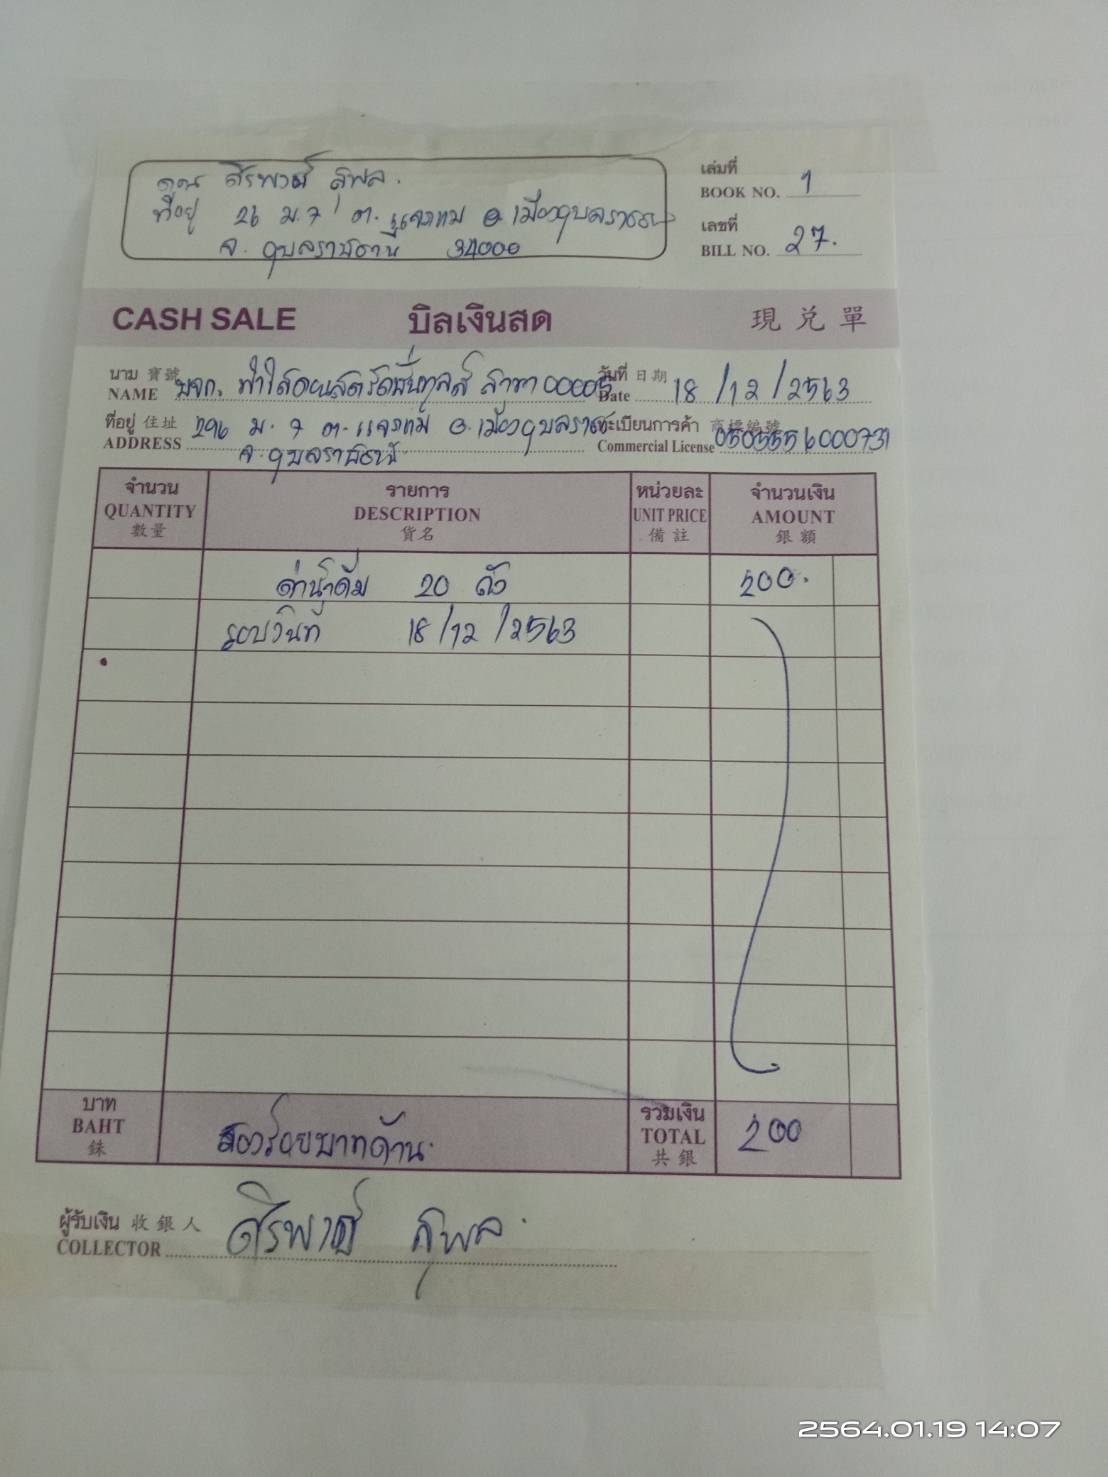 คุณ ศิรพาศ์ สุพล.
ที่อยู่ 26 ม.7 ต.แจระแม อ.เมืองอุบลราชธานี
จ.อุบลราชธานี 34000
เล่มที่
BOOK NO. 1
เลขที่
BILL NO. 27.
CASH SALE บิลเงินสด 現兑單
นาม 寶號
NAME บจก. สาขา 00005
วันที่ 日期
Date 18/12/2563
ที่อยู่ 住址
ADDRESS 296 ม.7 ต.แจระแม อ.เมืองอุบลราช
จ.อุบลราชธานี
ทะเบียนการค้า 商標編號
Commercial License 0505556000731
จำนวน รายการ หน่วยละ จำนวนเงิน
QUANTITY DESCRIPTION UNIT PRICE AMOUNT
數量 貨名 備註 銀額
ค่าน้ำดื่ม 20 ถัง 200.
รอบวันที่ 18/12/2563
บาท
BAHT
銖
สองร้อยบาทถ้วน.
รวมเงิน
TOTAL
共銀
200
ผู้รับเงิน 收銀人
COLLECTOR ศิรพาศ์ สุพล.
2564.01.19 14:07